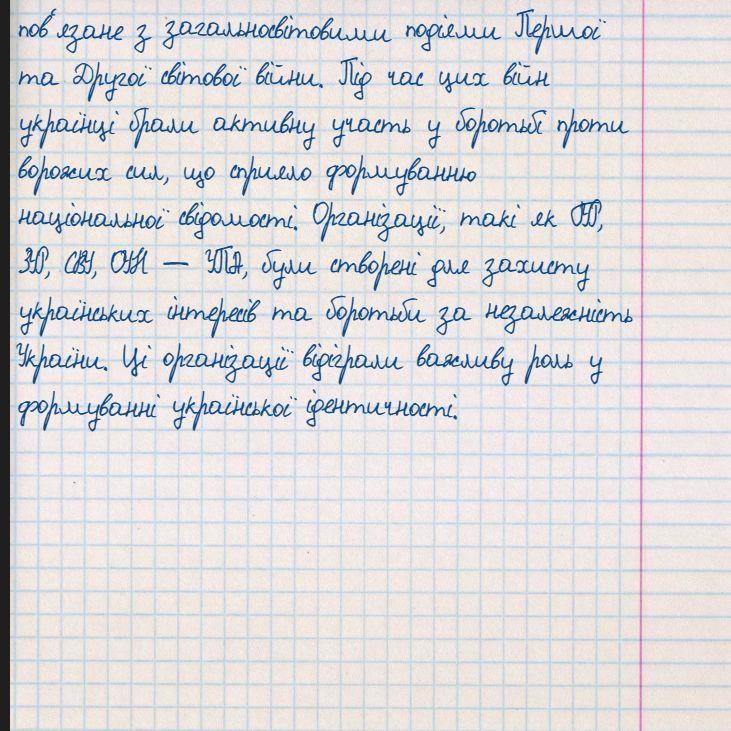 пов'язане з загальносвітовими подіями Першої
та Другої світової війни. Під час цих війн
українці брали активну участь у боротьбі проти
ворожих сил, що сприяло формуванню
національної свідомості. Організації, такі як
СВУ, ОУН — УПА, були створені для захисту
українських інтересів та боротьби за незалежність
України. Ці організації відіграли важливу роль у
формуванні української ідентичності.